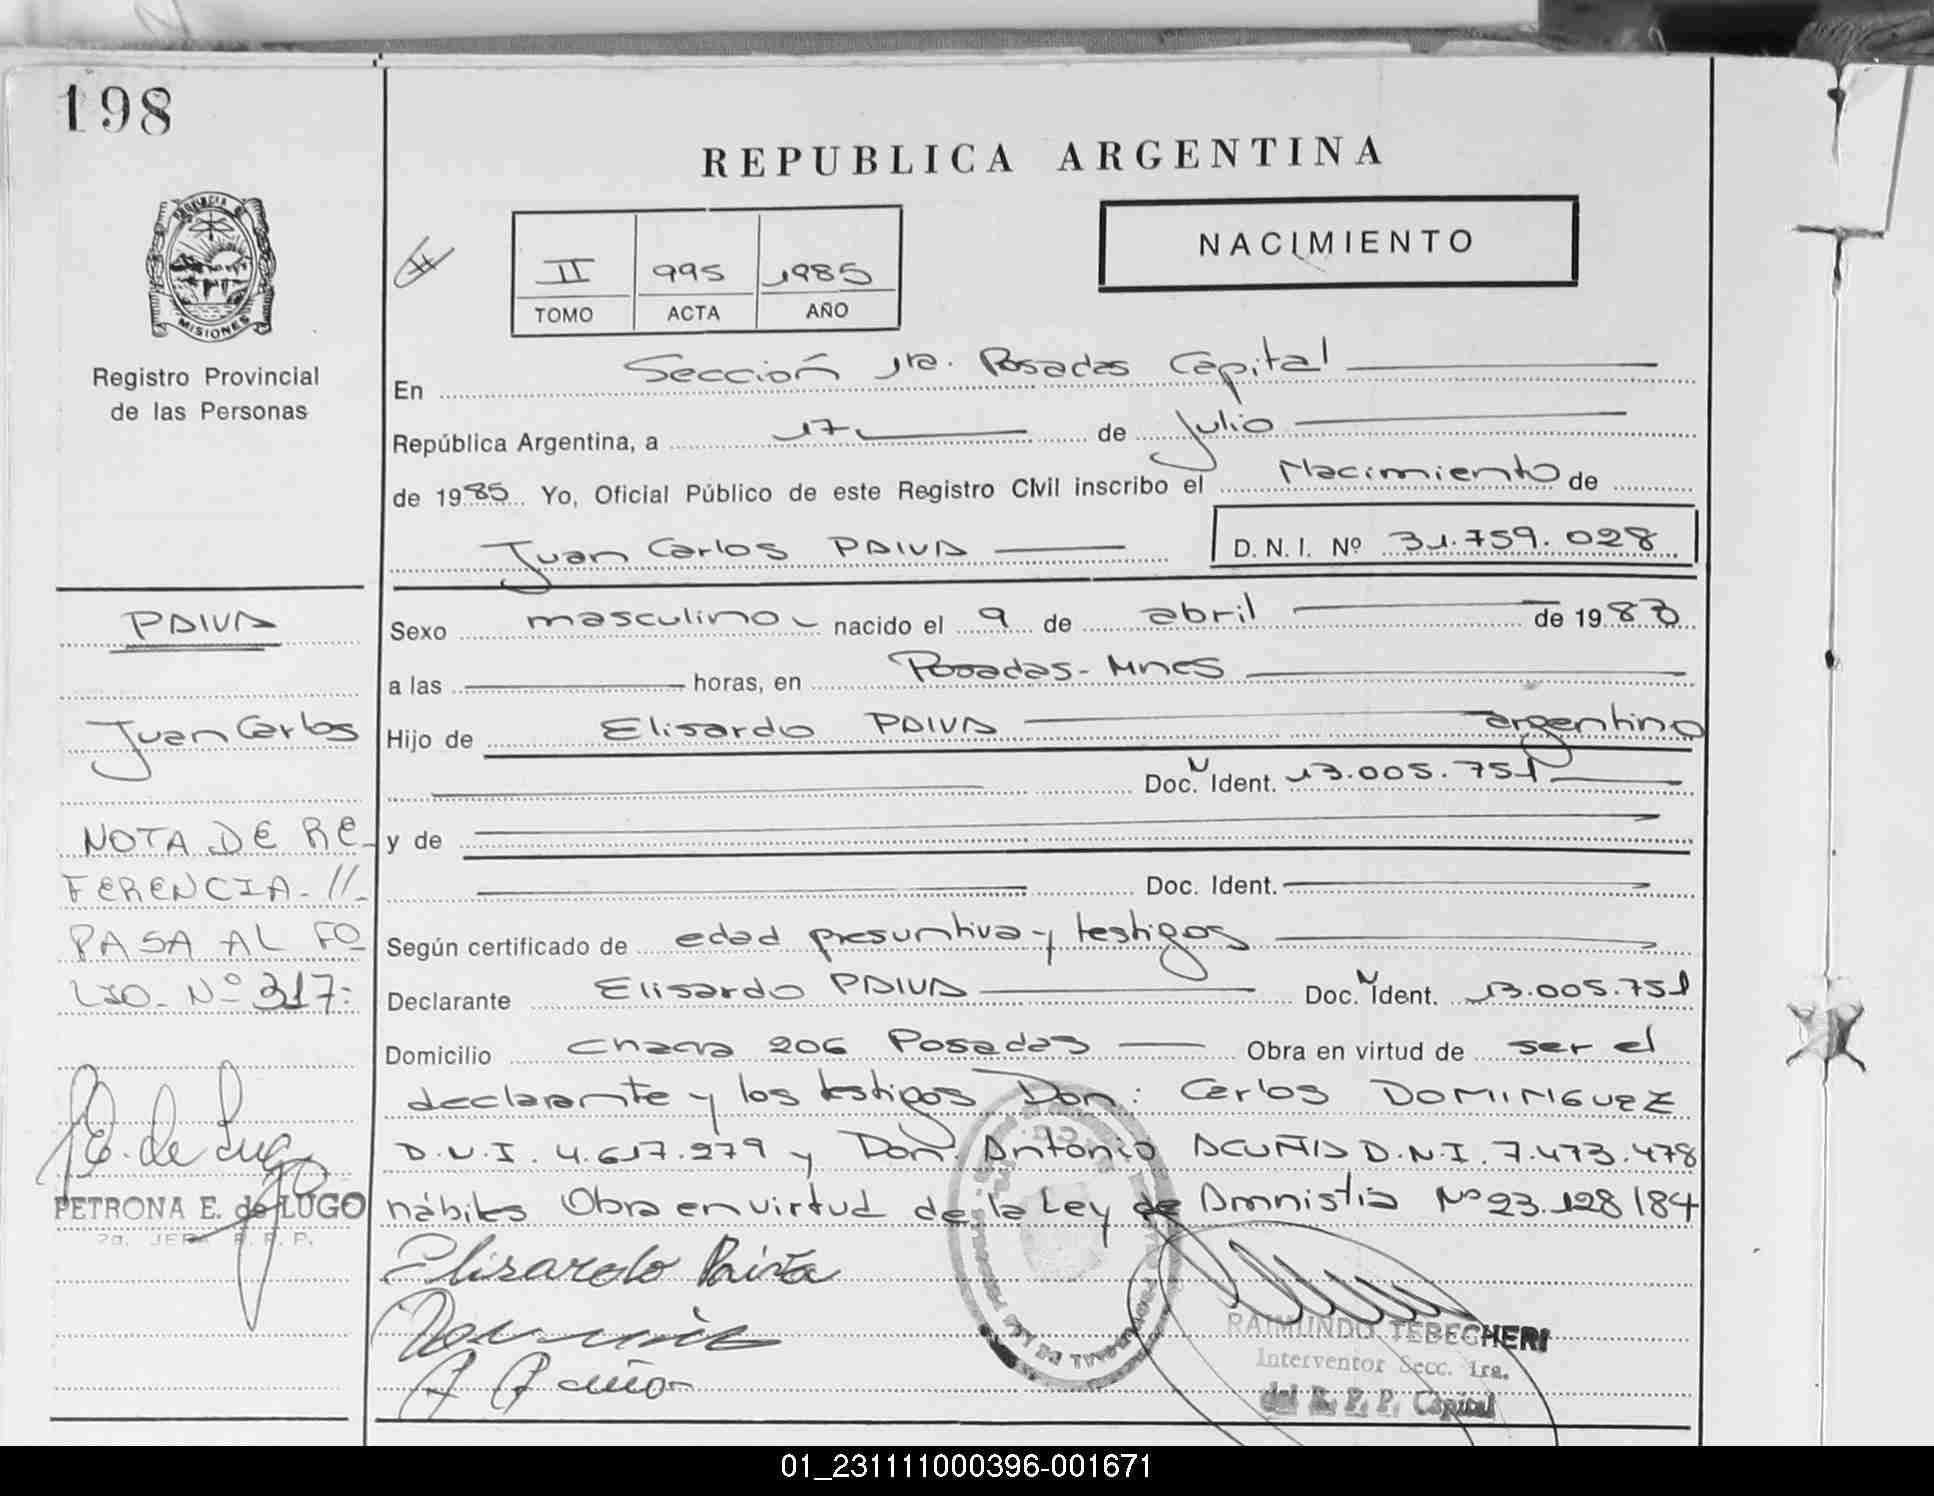 198
REPUBLICA ARGENTINA
NACIMIENTO
II 995 1985
TOMO ACTA AÑO
PROVINCIA DE
MISIONES
Registro Provincial
de las Personas
En Sección 1ra. Posadas Capital
República Argentina, a 17 de Julio
de 1985 Yo, Oficial Público de este Registro Civil inscribo el Nacimiento de
Juan Carlos PAIVA D. N. I. Nº 31.759.028
PAIVA
Juan Carlos
NOTA DE RE-
FERENCIA-//-
PASA AL FO
LIO- Nº 317:
PETRONA E. de LUGO
2a. JEFA R. P. P.
Sexo masculino nacido el 9 de abril de 1983
a las horas, en Posadas-Mnes
Hijo de Elisardo PAIVA argentino
Doc. N Ident. 13.005.751
y de
Doc. Ident.
Según certificado de edad presuntiva y testigos
Declarante Elisardo PAIVA Doc. N Ident. 13.005.751
Domicilio chacra 206 Posadas Obra en virtud de ser el
declarante y los testigos Don: Carlos DOMINGUEZ
D.N.I. 4.617.979 y Don Antonio ACUÑA D.N.I. 7.473.478
hábiles Obra en virtud de la Ley de Amnistia Nº 23.128/84
Elisardo Paiva
A Acuña
RAIMUNDO TEBECHERI
Interventor Secc. 1ra.
del R. P. P. Capital
01_231111000396-001671